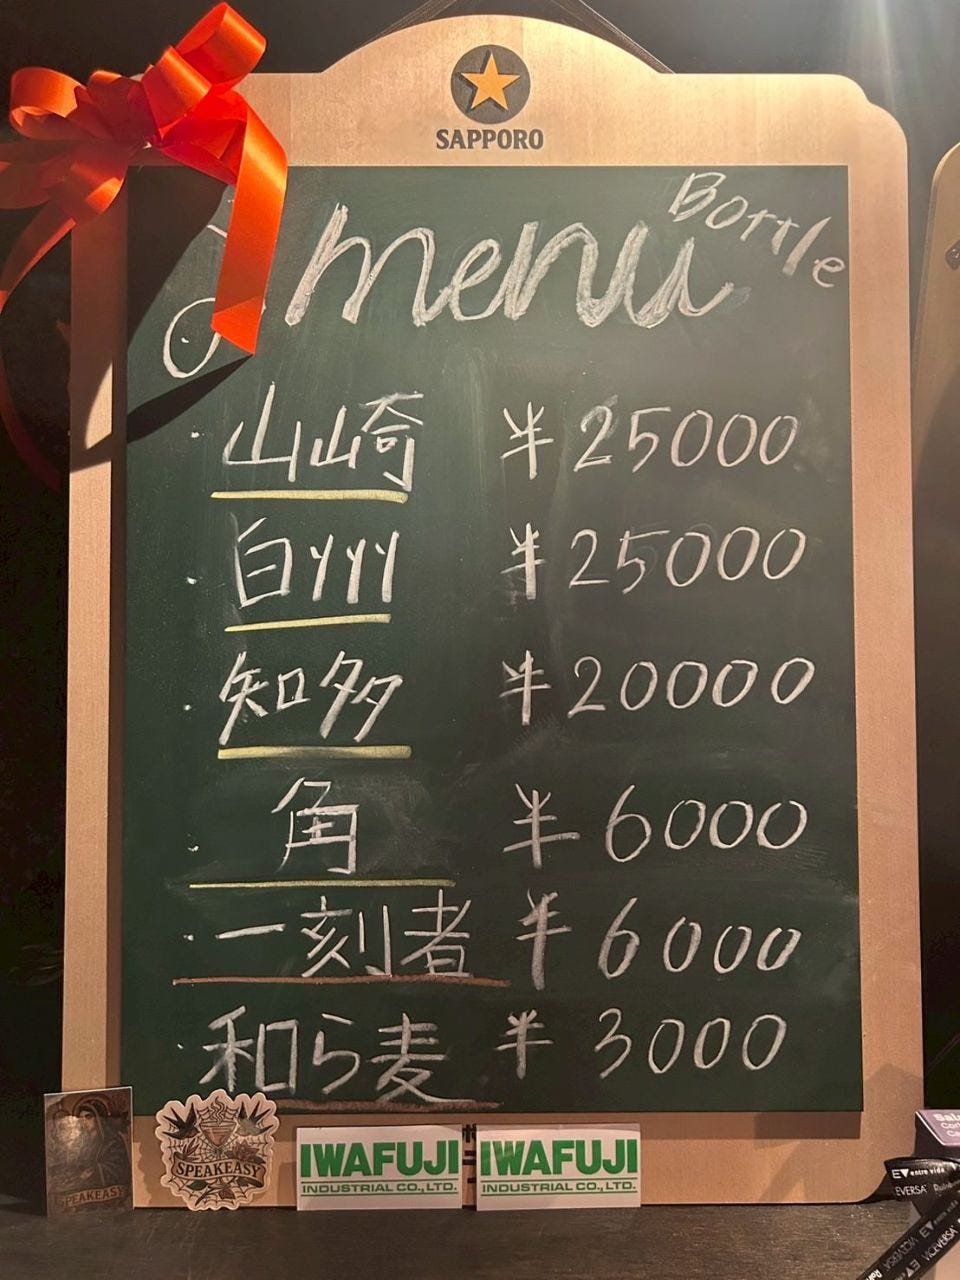 SAPPORO
menu Bottle
・山崎 ¥25000
・白州 ¥25000
・知多 ¥20000
・角 ¥6000
・一刻者 ¥6000
・和ら麦 ¥3000
SPEAKEASY
SPEAKEASY
IWAFUJI
INDUSTRIAL CO., LTD.
IWAFUJI
INDUSTRIAL CO., LTD.
entre vida
VICEVERSA